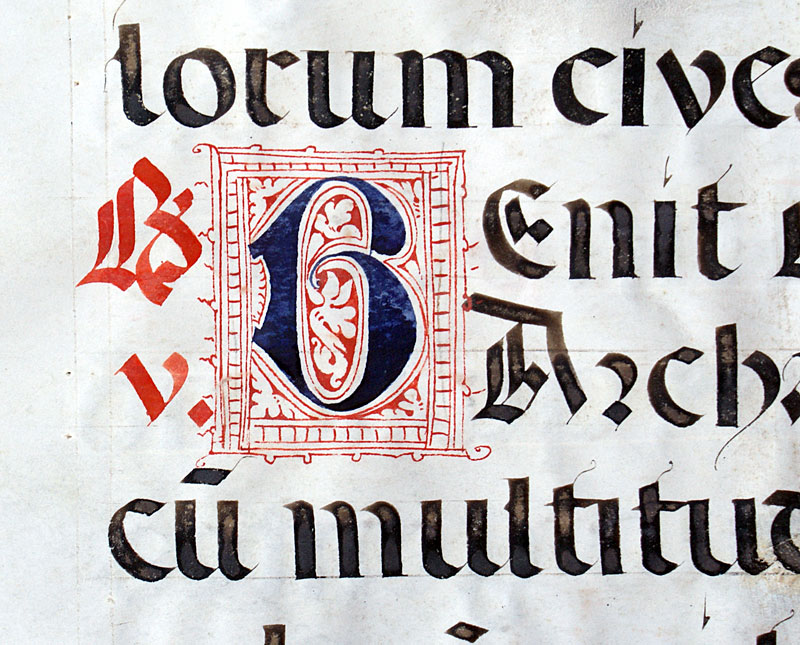 lorum cives
℟ VEnit
v. Arch
cū multitud